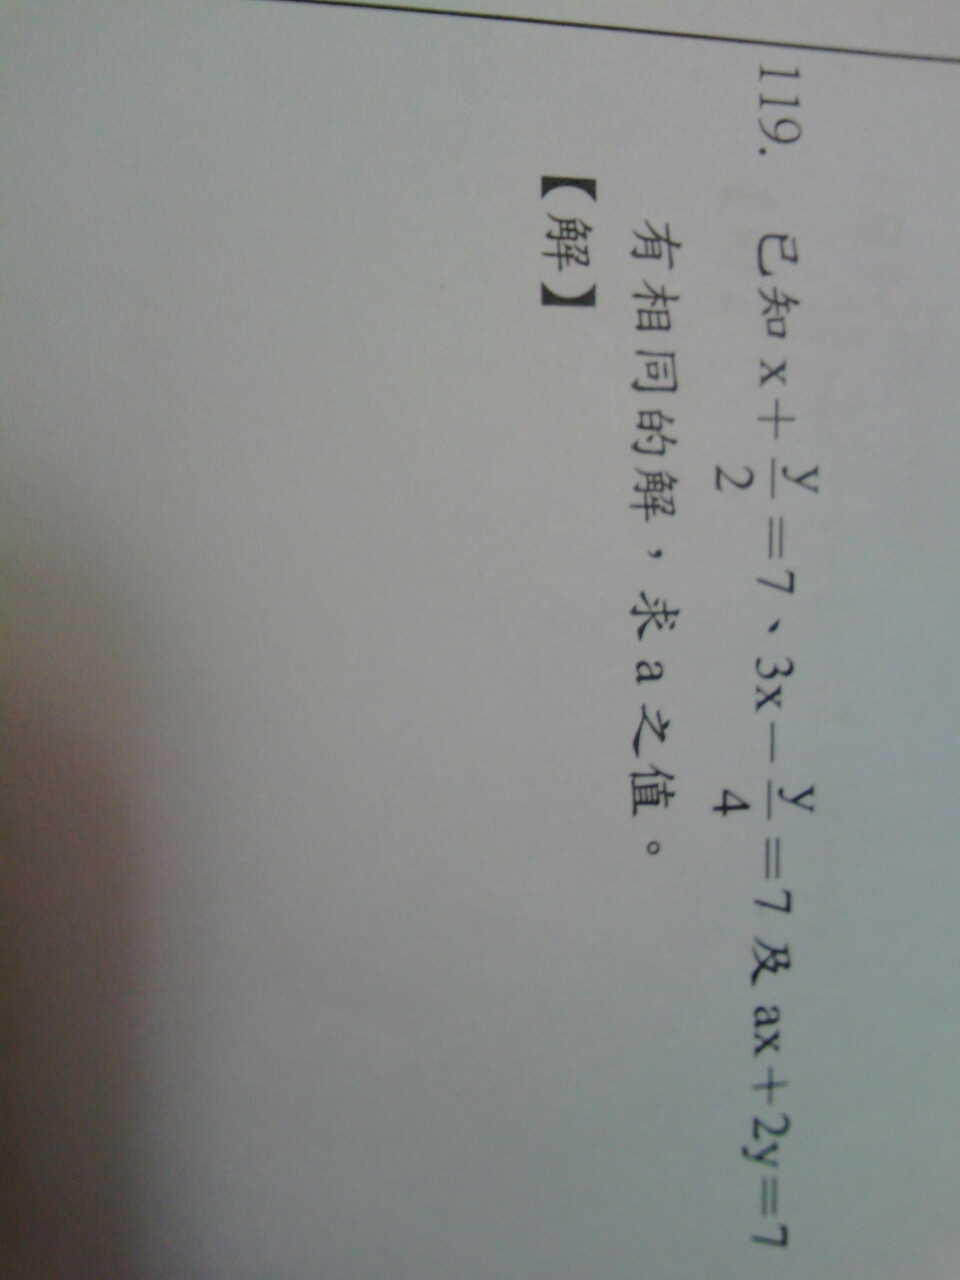 119. 已知 x＋y/2＝7、3x－y/4＝7 及 ax＋2y＝7
有相同的解，求 a 之值。
【解】